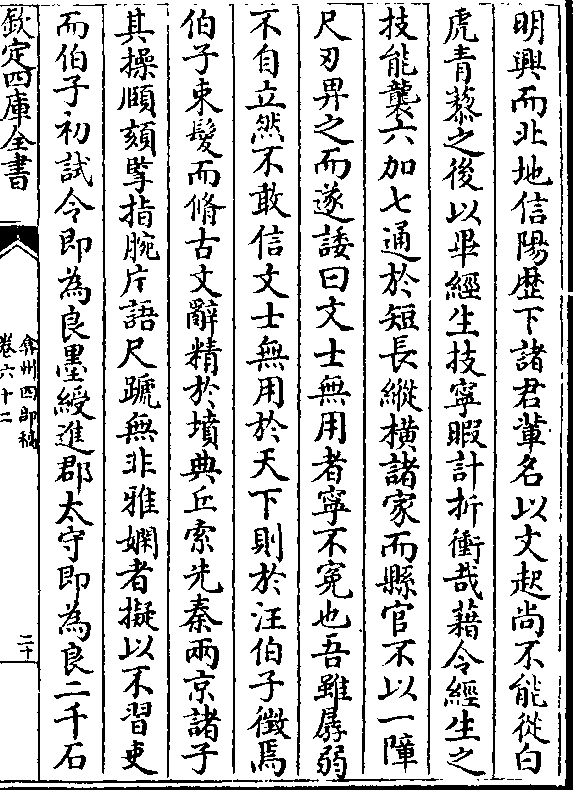 明興而北地信陽歴下諸君輩名以文起尚不能從白
虎青藜之後以畢經生技寧暇計折衝哉藉令經生之
技能襲六加七通於短長縱横諸家而縣官不以一障
尺刃畀之而遂諉曰文士無用者寧不寃也吾雖孱弱
不自立然不敢信文士無用於天下則於汪伯子徵焉
伯子束髮而脩古文辭精於墳典丘索先秦兩京諸子
其操頤頦擘指腕片語尺蹏無非雅嫻者擬以不習吏
而伯子初試令即為良墨綬進郡太守即為良二千石
欽定四庫全書
弇州四部稿
卷六十二
二十